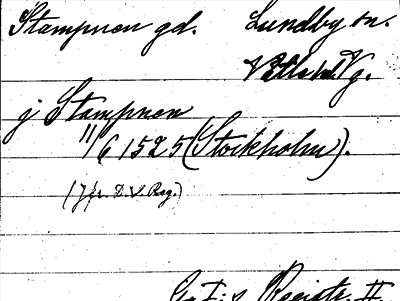 Stampnen gd. Lundby sn.
Vg.
j Stampnen
11/6 1525 (Stockholm).
(Jfr. D.V. Reg.)
G. I:s Registr. II